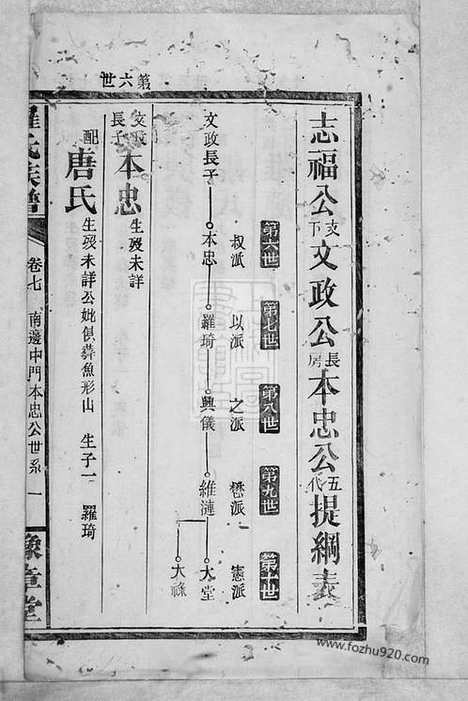 志福公支下文政公長房本忠公五代提綱表
第六世 第七世 第八世 第九世 第十世
叔派 以派 之派 懋派 憲派
文政長子 本忠 羅琦 興儀 維漣 大堂
大祿
第六世
文政長子 本忠 生歿未詳
配 唐氏 生歿未詳公妣俱葬魚形山 生子一 羅琦
羅氏族譜 卷七 南邊中門本忠公世系 一 豫章堂
www.fozhu920.com